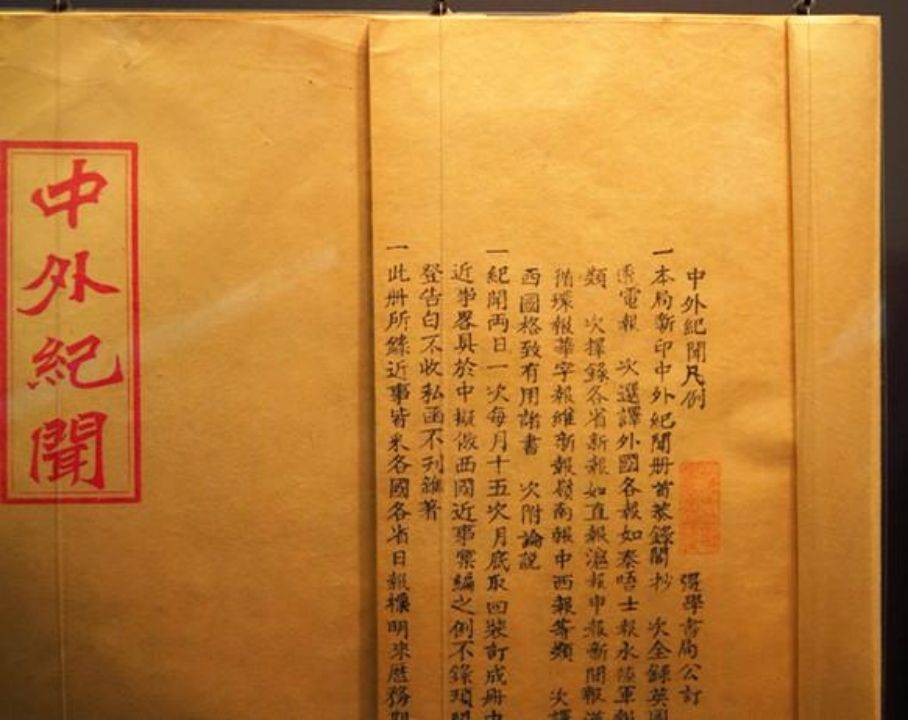 中外紀聞凡例 彊學書局公訂
一本局新印中外紀聞册首恭錄閣抄 次全錄英國
透電報 次選譯外國各報如泰晤士報水陸軍報
類 次擇錄各省新報如直報滬報申報新聞報漢
循環報華字報維新報嶺南報中西報等類 次譯
西國格致有用諸書 次附論說
一紀聞兩日一次每月十五次月底取回裝訂成册中
近事畧具於中擬倣西國近事彙編之例不錄瑣
登告白不收私函不刊雜著
一此册所錄近事皆采各國各省日報標明來歷務期
中外紀聞